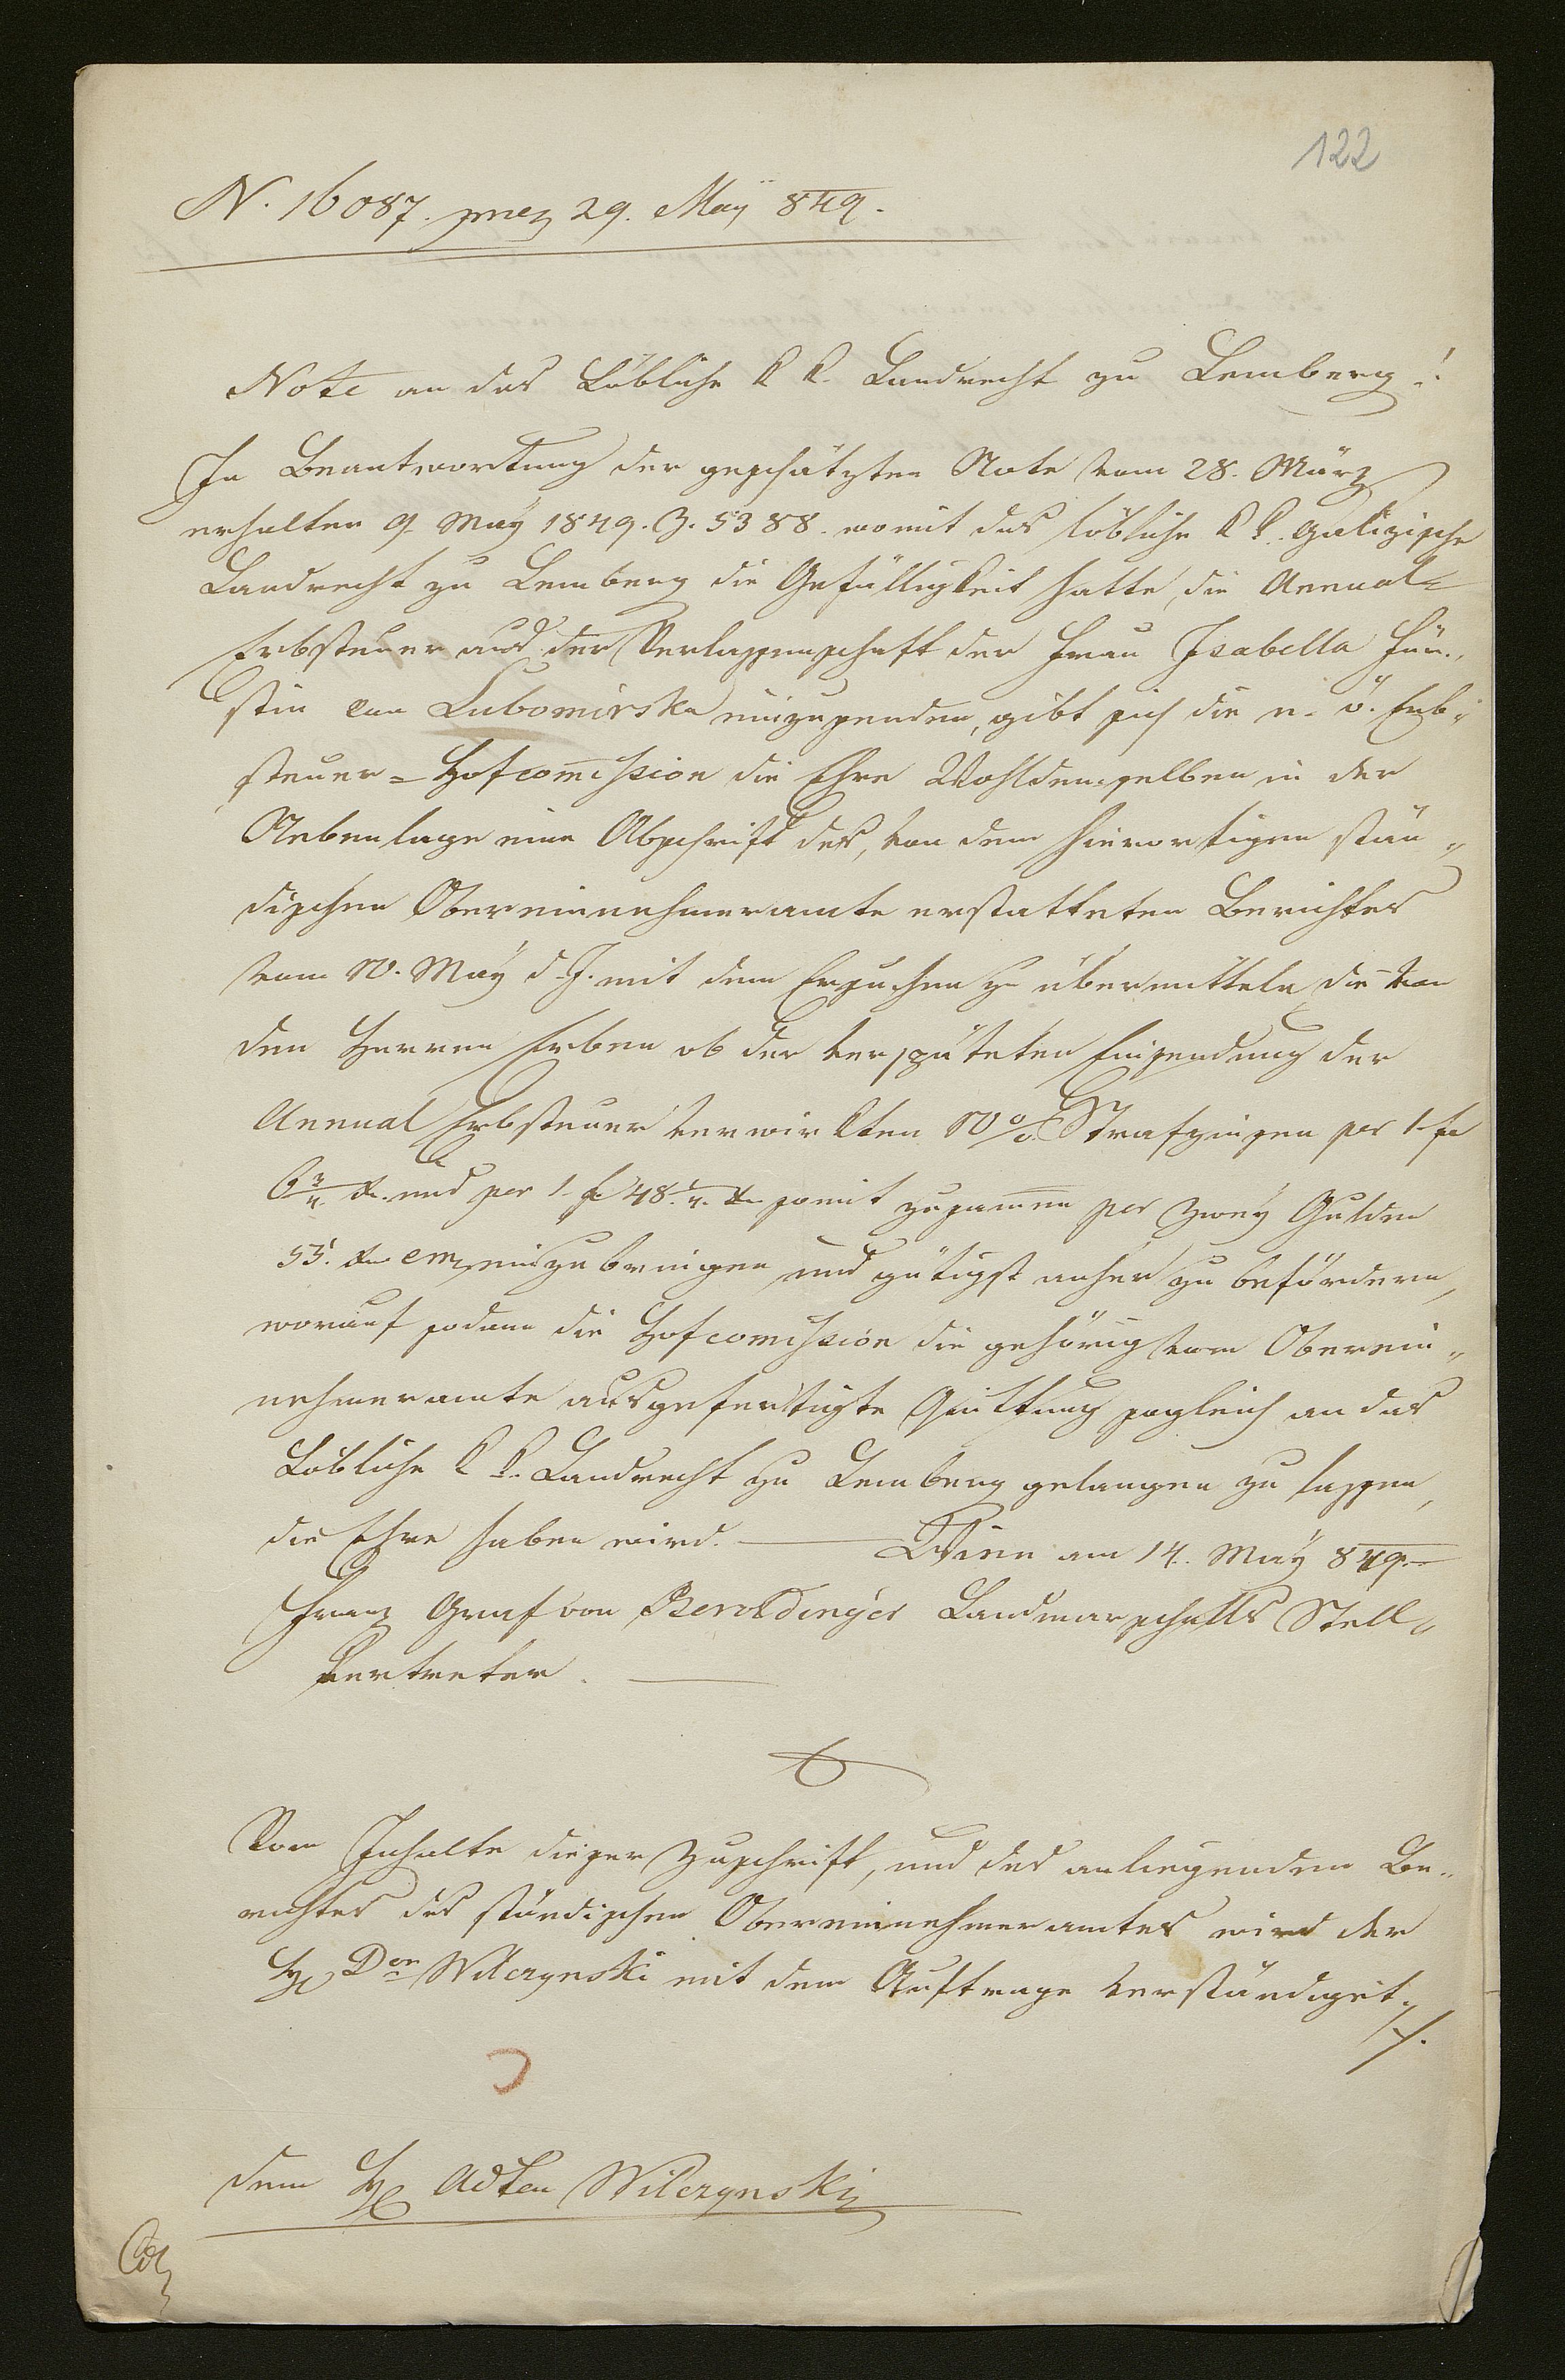 122
N. 16087. prez 29. Maÿ 849.
Note an das Löbliche k k. Landrecht zu Lemberg!
In Beantwortung der geschätzten Note vom 28. März
erhalten 9. Maÿ 1849. Z. 5388. womit das löbliche k k. galizische
Landrecht zu Lemberg die Gefälligkeit hatte, die Annual=
Erbsteuer aus der Verlassenschaft der Frau Isabella Für„
stin von Lubomirska einzusenden, gibt sich die n. ö. Erb„
steuer=Hofcom̄ission die Ehre Wohldemselben in der
Nebenlage eine Abschrift des, von dem hierortigen stän„
dischen Obereinnehmeramte erstatteten Berichtes
vom 10. Maÿ d. J. mit dem Ersuchen zu übermitteln, die von
den Herren Erben ob der verspäteten Einsendung der
Annual Erbsteuer verwirkten 10% Strafzinsen per 1 fr
6¾ xr. und per 1 fr 48¼ xr somit zusam̄en per zweÿ Gulden
55. xr CMz einzubringen und gütigst anher zu befördern,
worauf sodann die Hofcomission die gehörig vom Oberein„
nehmeramte ausgefertigte Quittung sogleich an das
Löbliche k k. Landrecht zu Lemberg gelangen zu lassen,
die Ehre haben wird. — Wien am 14. Maÿ 849.
Franz Graf von Beroldinger Landmarschalls Stell„
vertreter. —
Vom Inhalte dieser Zuschrift, und des anliegenden Be„
richtes des ständischen Obereinnehmeramtes wird der
H. Dor Wilczynski mit dem Auftrage verständiget,
./.
dem H. Adten Wilczynski